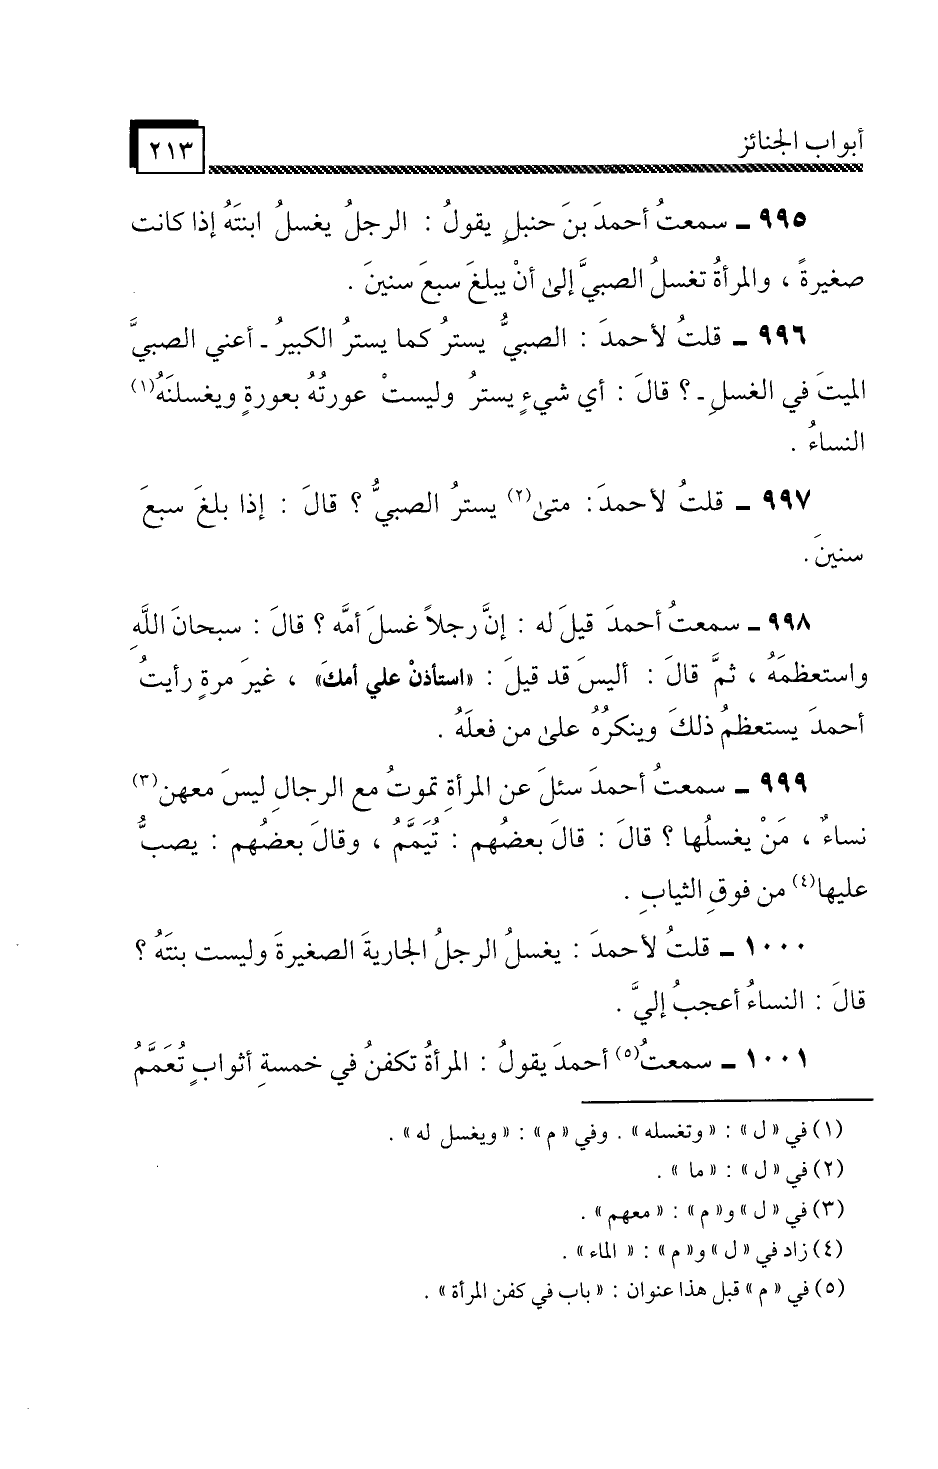 أبواب الجنائز
٢١٣
٩٩٥ ـ سمعتُ أحمدَ بنَ حنبلٍ يقولُ : الرجلُ يغسلُ ابنتَهُ إذا كانت
صغيرةً ، والمرأةُ تغسلُ الصبيَّ إلىٰ أنْ يبلغَ سبعَ سنينَ .
٩٩٦ ـ قلتُ لأحمدَ : الصبيُّ يسترُ كما يسترُ الكبيرُ ـ أعني الصبيَّ
الميتَ في الغسلِ ـ ؟ قالَ : أي شيءٍ يسترُ وليستْ عورتُهُ بعورةٍ ويغسلنَهُ(١)
النساءُ .
٩٩٧ ـ قلتُ لأحمدَ : متىٰ(٢) يسترُ الصبيُّ ؟ قالَ : إذا بلغَ سبعَ
سنينَ .
٩٩٨ ـ سمعتُ أحمدَ قيلَ له : إنَّ رجلاً غسلَ أمَّه ؟ قالَ : سبحانَ اللَّهِ
واستعظمَهُ ، ثمَّ قالَ : أليسَ قد قيلَ : «استأذنْ علي أمكَ» ، غيرَ مرةٍ رأيتُ
أحمدَ يستعظمُ ذلكَ وينكرُهُ علىٰ من فعلَهُ .
٩٩٩ ـ سمعتُ أحمدَ سئلَ عن المرأةِ تموتُ مع الرجالِ ليسَ معهن(٣)
نساءٌ ، مَنْ يغسلُها ؟ قالَ : قالَ بعضُهم : تُيَمَّمُ ، وقالَ بعضُهم : يصبُّ
عليها(٤) من فوقِ الثيابِ .
١٠٠٠ ـ قلتُ لأحمدَ : يغسلُ الرجلُ الجاريةَ الصغيرةَ وليست بنتَهُ ؟
قالَ : النساءُ أعجبُ إليَّ .
١٠٠١ ـ سمعتُ(٥) أحمدَ يقولُ : المرأةُ تكفنُ في خمسةِ أثوابٍ تُعَمَّمُ
(١) في « ل » : « وتغسله » . وفي « م » : « ويغسل له » .
(٢) في « ل » : « ما » .
(٣) في « ل » و« م » : « معهم » .
(٤) زاد في « ل » و« م » : « الماء » .
(٥) في « م » قبل هذا عنوان : « باب في كفن المرأة » .